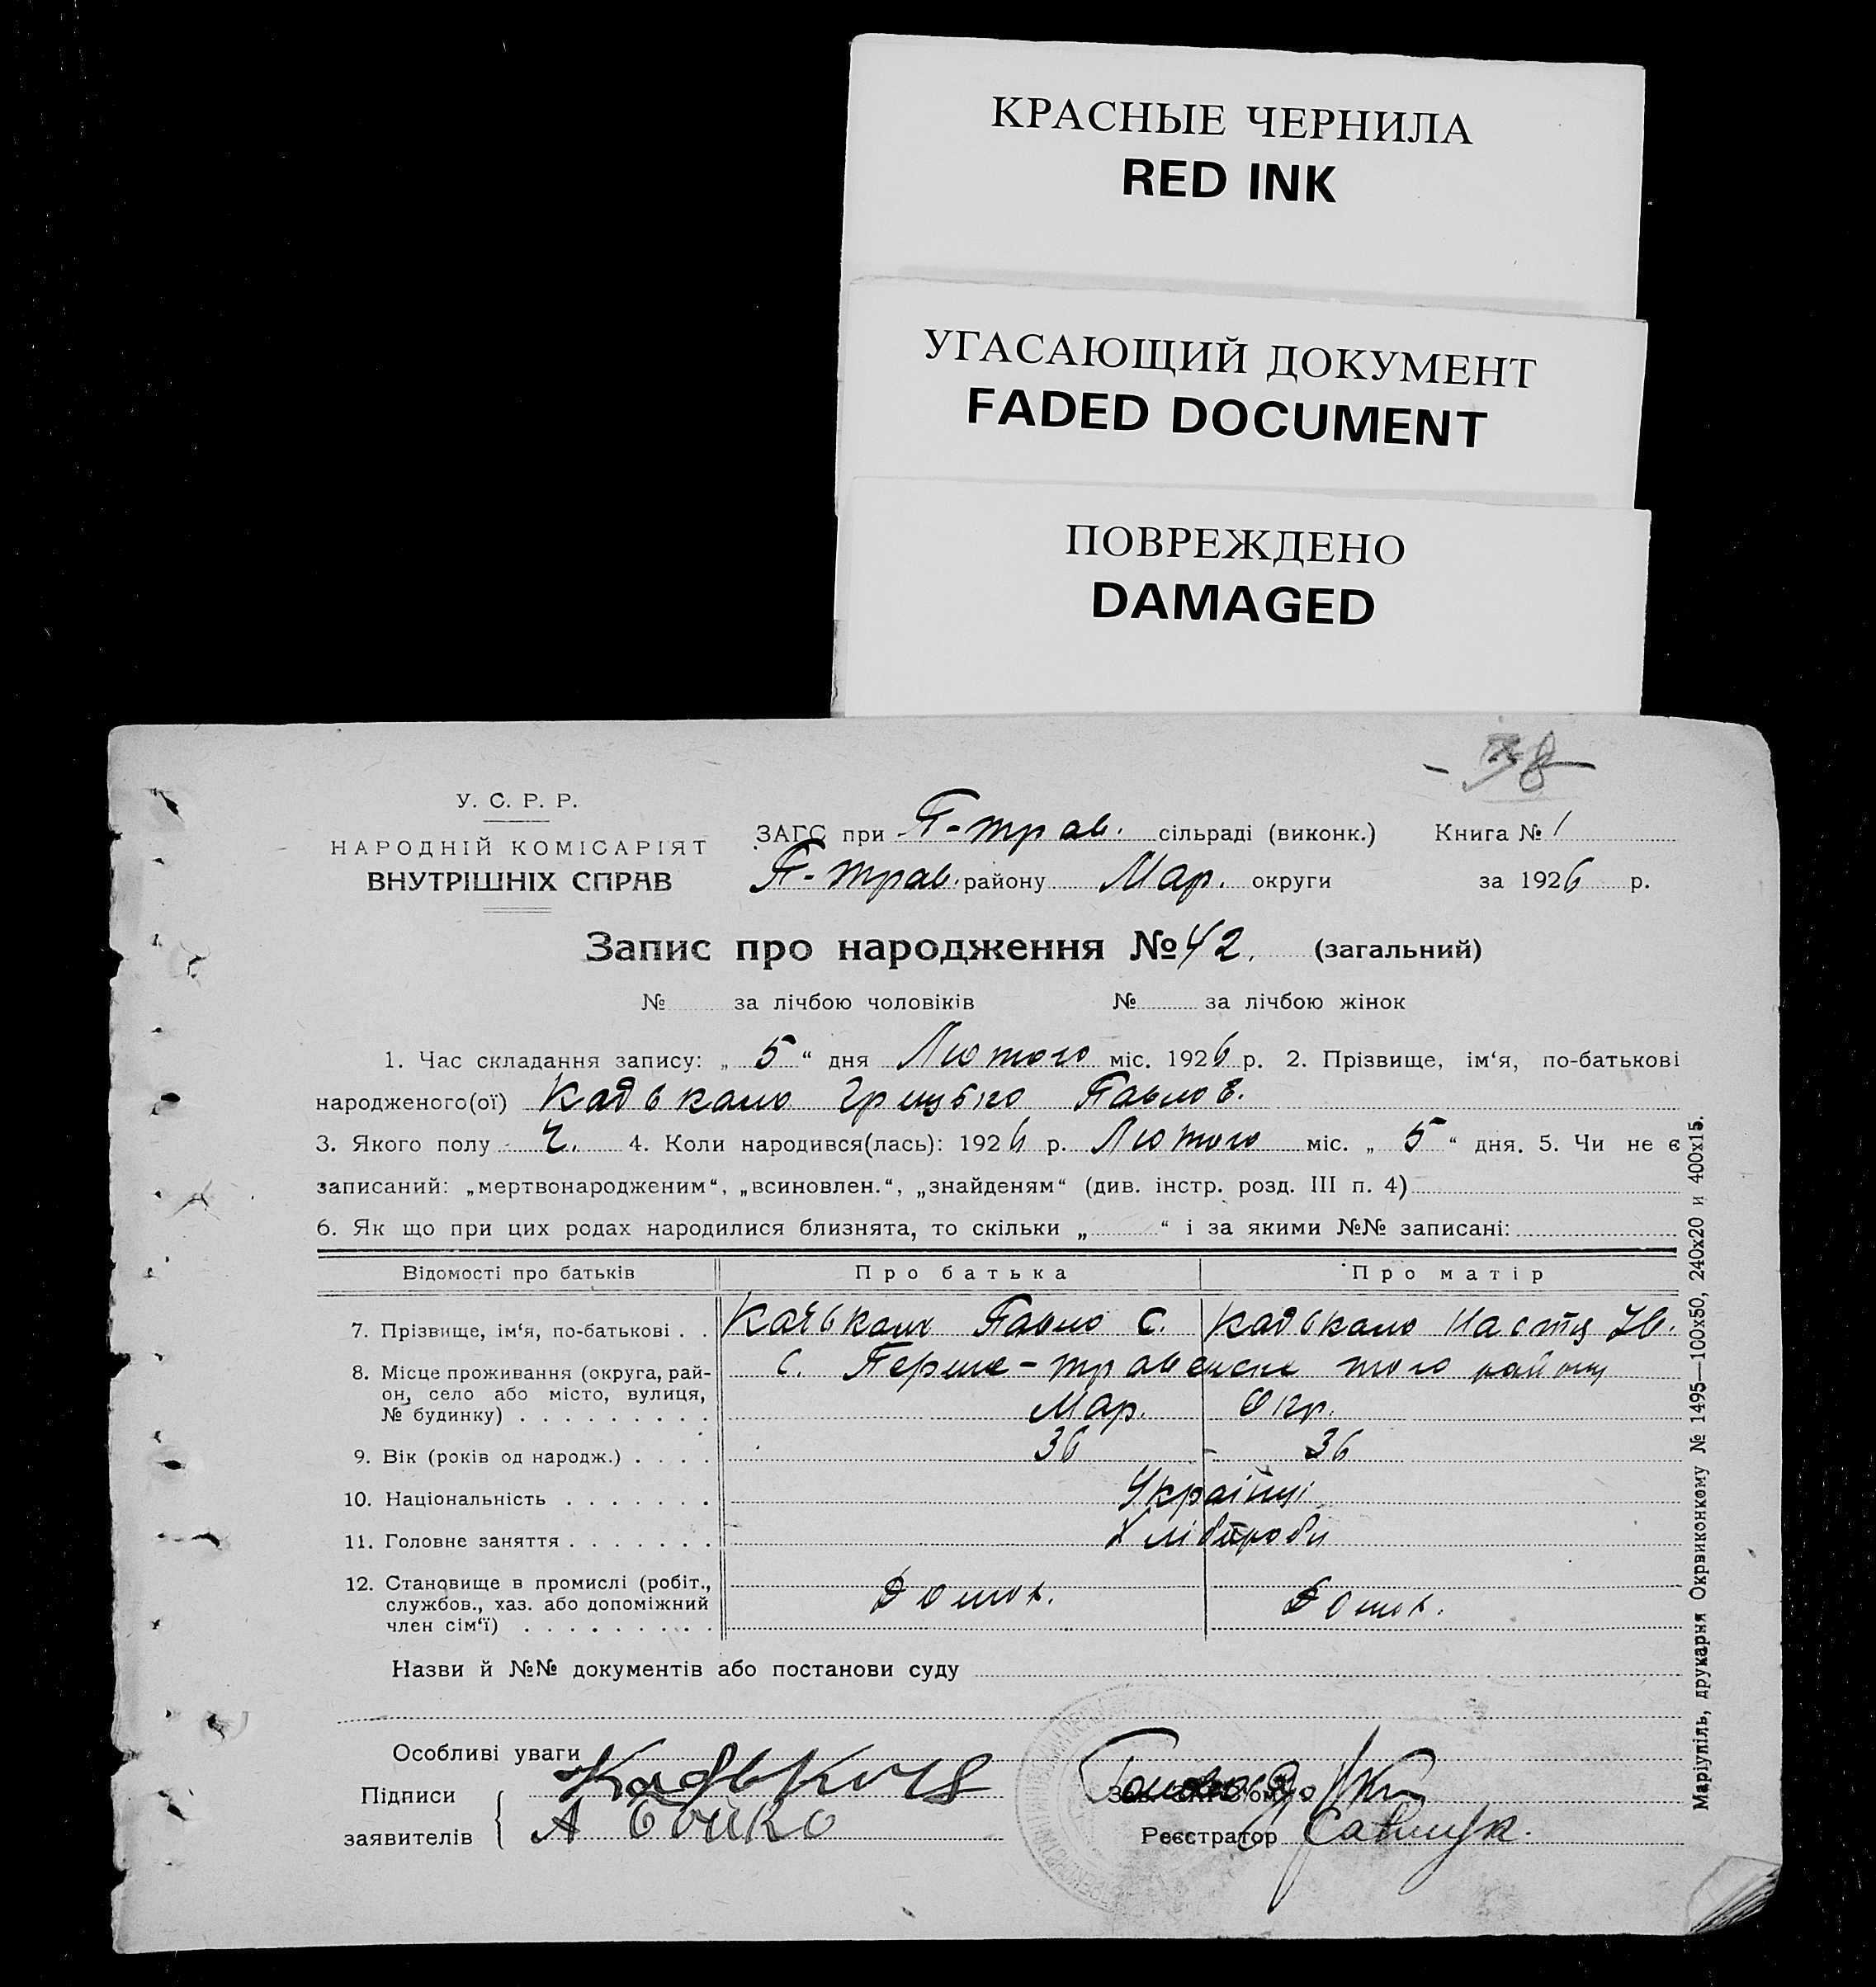 КРАСНЫЕ ЧЕРНИЛА
RED INK
УГАСАЮЩИЙ ДОКУМЕНТ
FADED DOCUMENT
ПОВРЕЖДЕНО
DAMAGED
38
У. С. Р. Р.
НАРОДНІЙ КОМІСАРІЯТ
ВНУТРІШНІХ СПРАВ
ЗАГС при П-трав. сільраді (виконк.) Книга № 1
П-трав. району Мар. округи за 1926 р.
Запис про народження № 42. (загальний)
№ за лічбою чоловіків № за лічбою жінок
1. Час складання запису: „ 5 “ дня Лютого міс. 1926 р. 2. Прізвище, ім‘я, по-батькові
народженого(ої) Кадькало Грицько Павлов.
3. Якого полу Ч. 4. Коли народився(лась): 1926 р. Лютого міс. „ 5 “ дня. 5. Чи не є
записаний: „мертвонародженим“, „всиновлен.“, „знайденям“ (див. інстр. розд. III п. 4)
6. Як що при цих родах народилися близнята, то скільки „ “ і за якими №№ записані:
Відомості про батьків Про батька Про матір
7. Прізвище, ім‘я, по-батькові . . Кадькало Павло С. Кадькало Настя Ів.
8. Місце проживання (округа, рай-
он, село або місто, вулиця,
№ будинку) . . . . . . . . .
с. Перше-травенськ того району
Мар. Окр.
9. Вік (років од народж.) . . . . 36 36
10. Національність . . . . . . . Українці
11. Головне заняття . . . . . . . Хлібороби
12. Становище в промислі (робіт.,
службов., хаз. або допоміжний
член сім‘ї) . . . . . . . . .
Назви й №№ документів або постанови суду
Особливі уваги
Підписи
заявителів
А Бойко
Реєстратор Савчук.
Маріупіль, друкарня Окрвиконкому № 1495—100х50, 240х20 и 400х15.